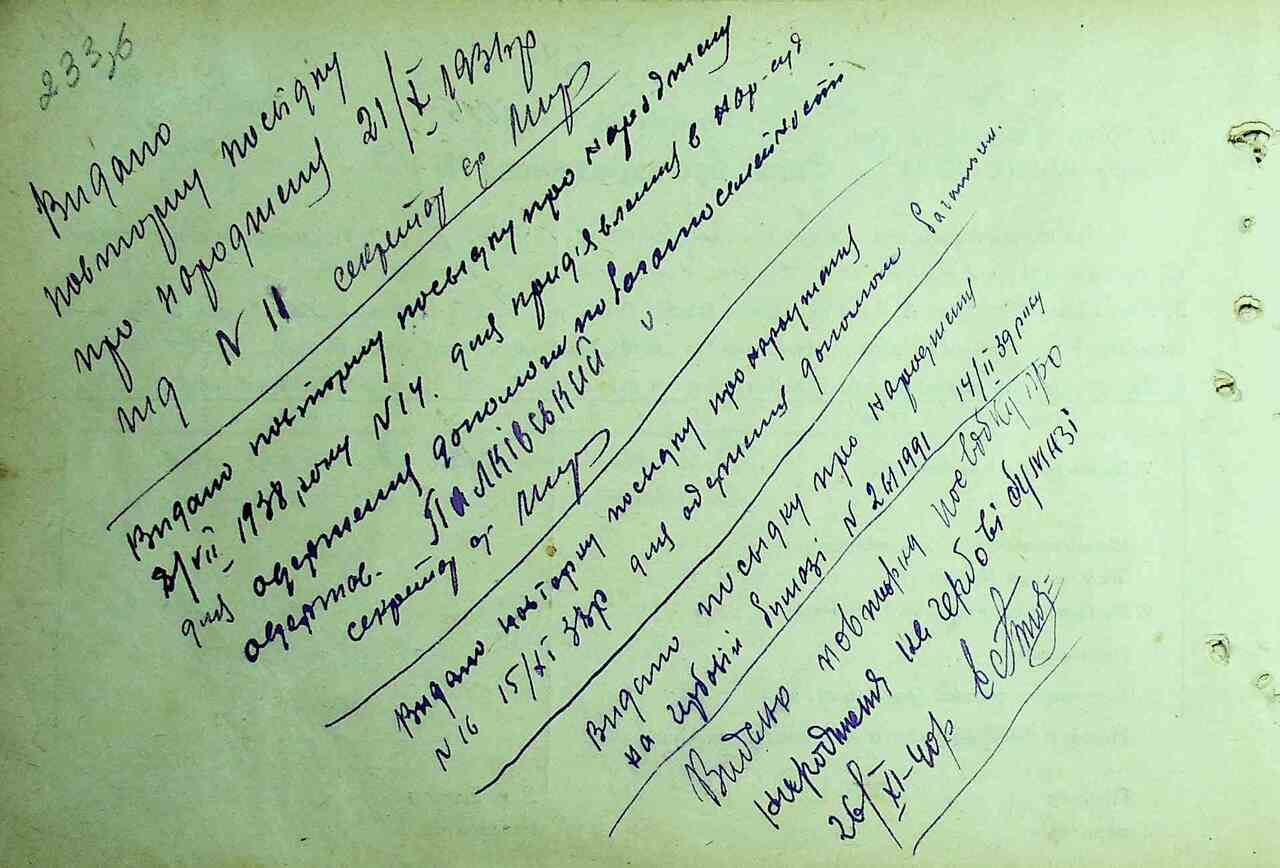 233,6
Видано
повторну посвідку
про народження 21/X 1931р
під N 11 секретар ср
Видано повторну посвідку про народження
8/VII 1938 року N 14. для предявления в нар-суд
для одержения допомоги по багатосемейности
одержав. ПАЛКІВСЬКИЙ
секретар ср
Видано повторну посвідку про народження
N 16 15/XI 38р для одержения допомоги багатосем.
Видано посвідку про народження
на гербовій бумазі N 2611991 14/II 39 року
Видано повторну посвідку про
народження на гербові бумазі
26/XI-40р